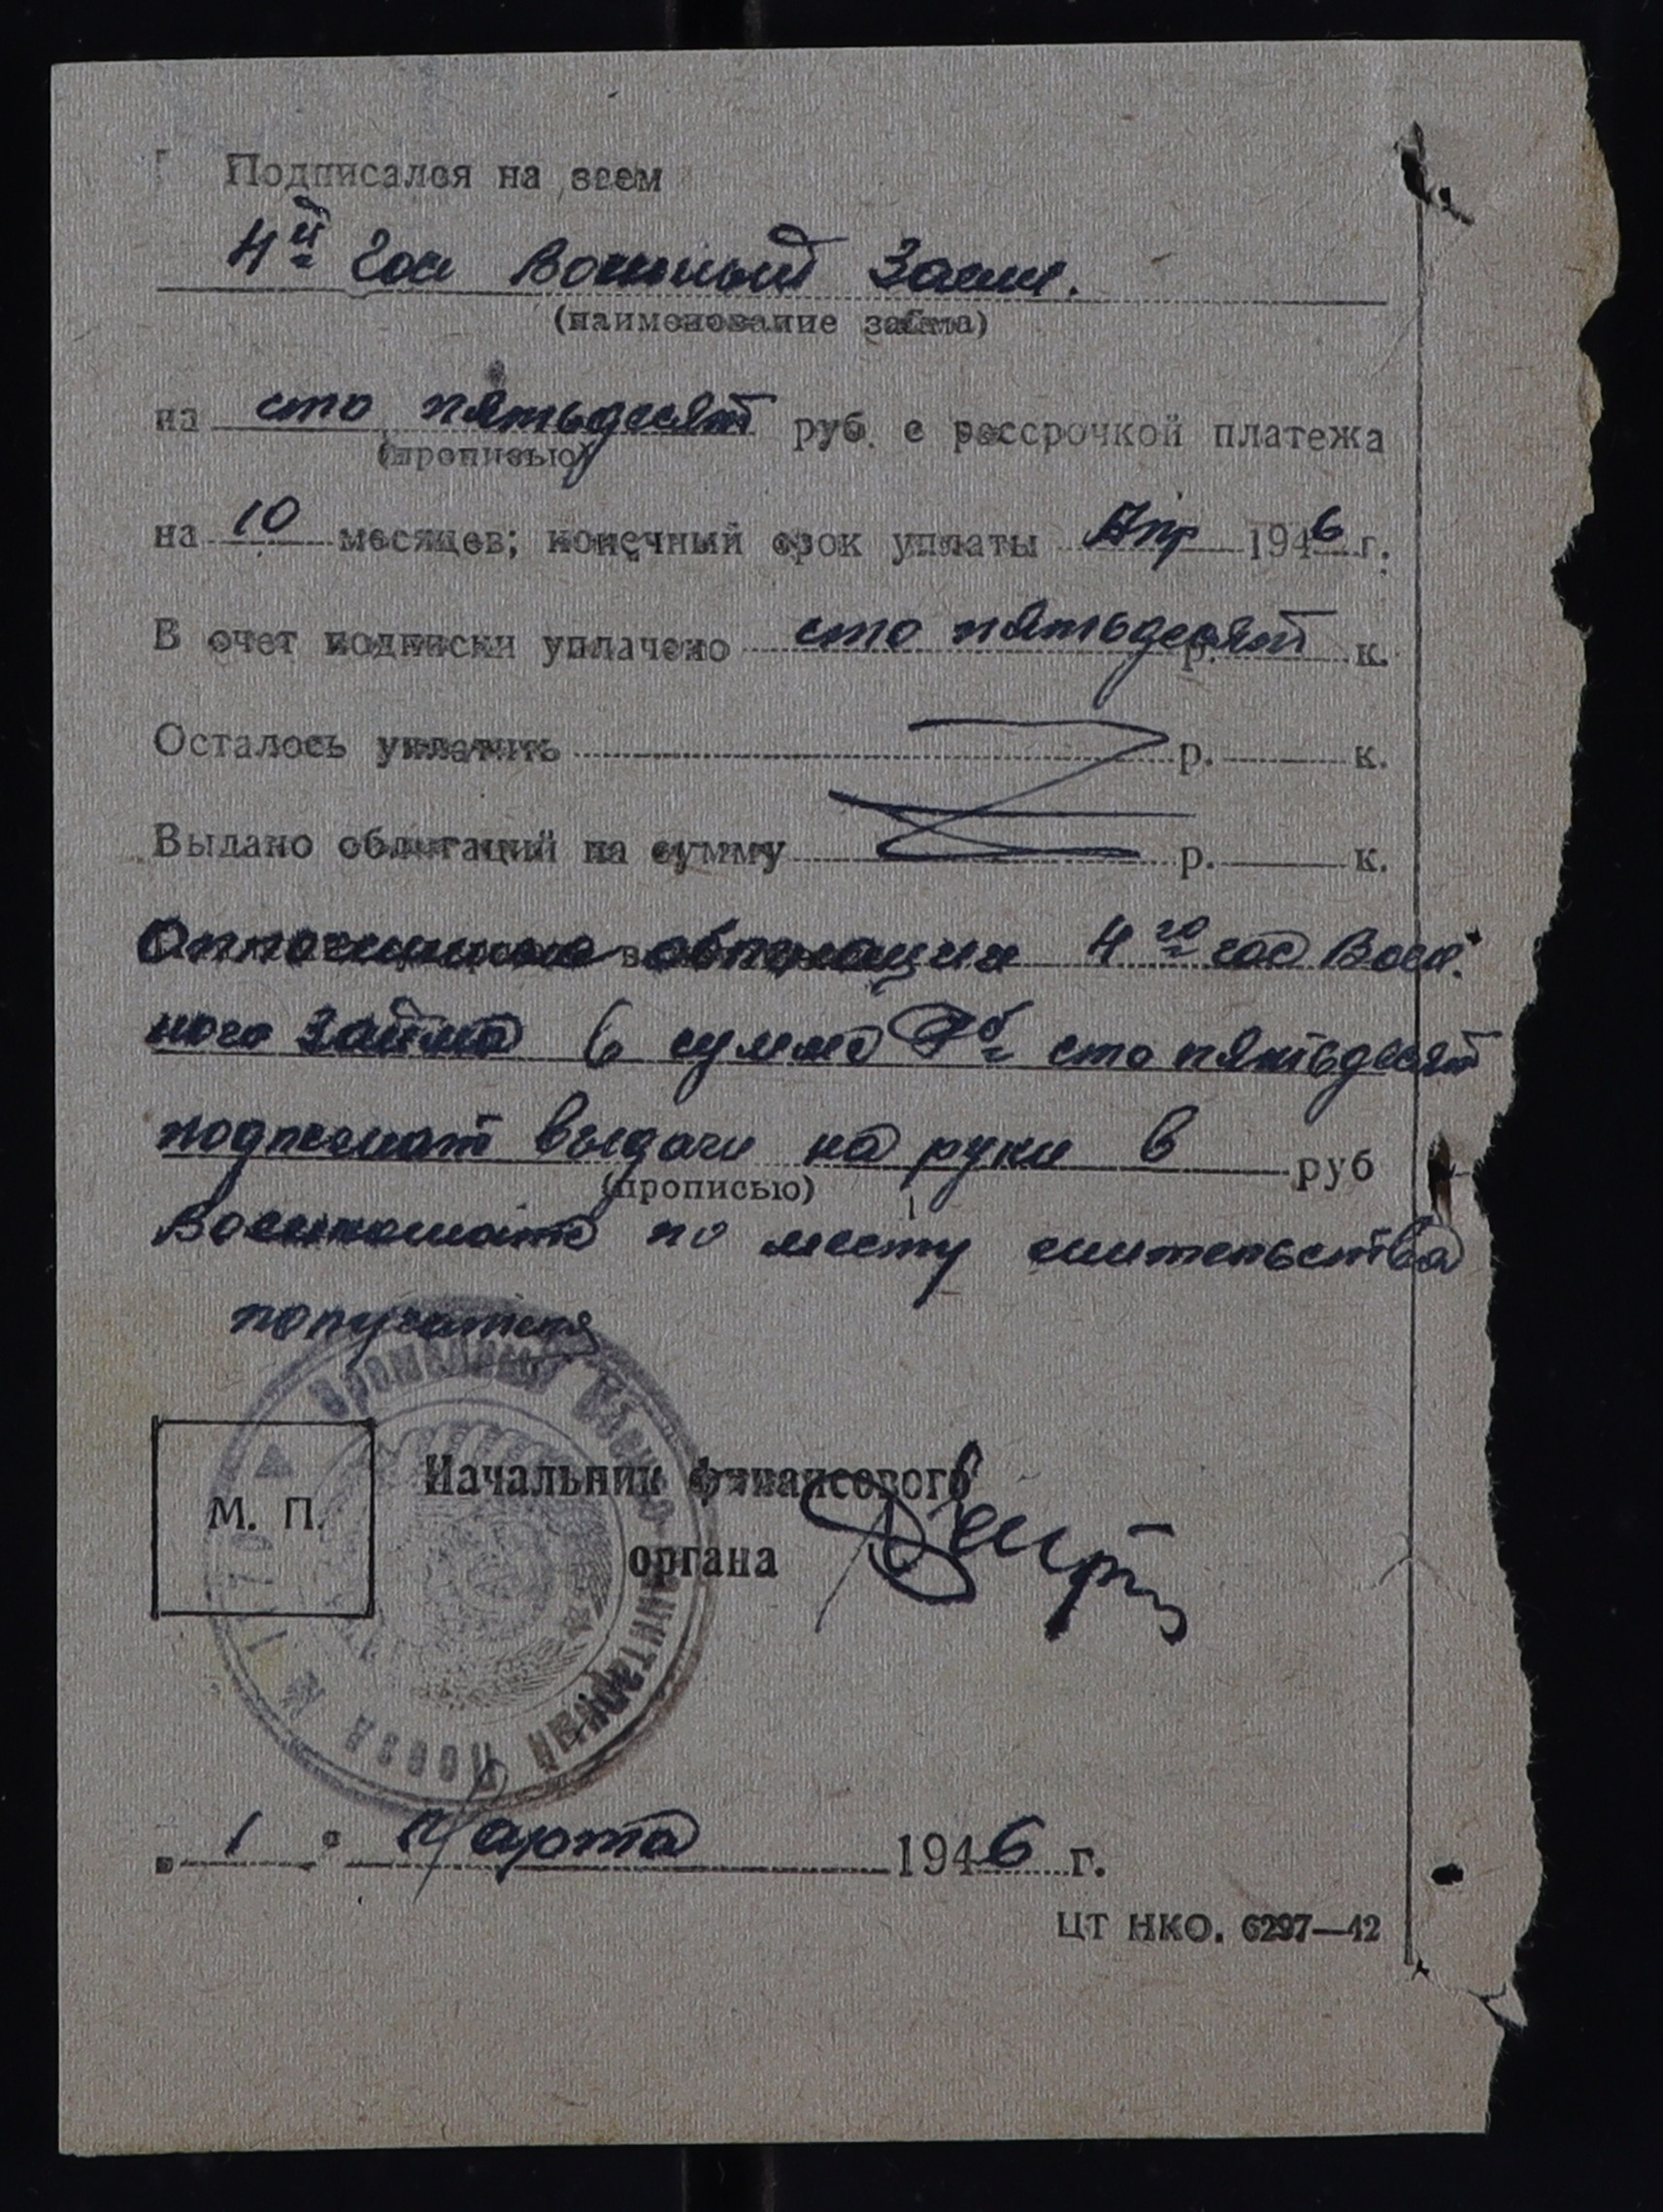 Подписался на заем
4й Гос Военный Заем.
(наименование займа)
на сто пятьдесят руб. с рассрочкой платежа
(прописью)
на 10 месяцев; конечный срок уплаты Апр 1946 г.
В счет подписки уплачено сто пятьдесят р. к.
Осталось уплатить р. к.
Выдано облигаций на сумму р. к.
Оплаченные облигации 4го гос Воен.
ного Займа в сумме Рб сто пятьдесят
подлежат выдачи на руки в руб
(прописью)
Военкомате по месту жительства
получателя
Временный Военно-Санитарный Поезд №
М. П.
Начальник финансового
органа
" 1 " Марта 1946 г.
ЦТ НКО. 6297—42